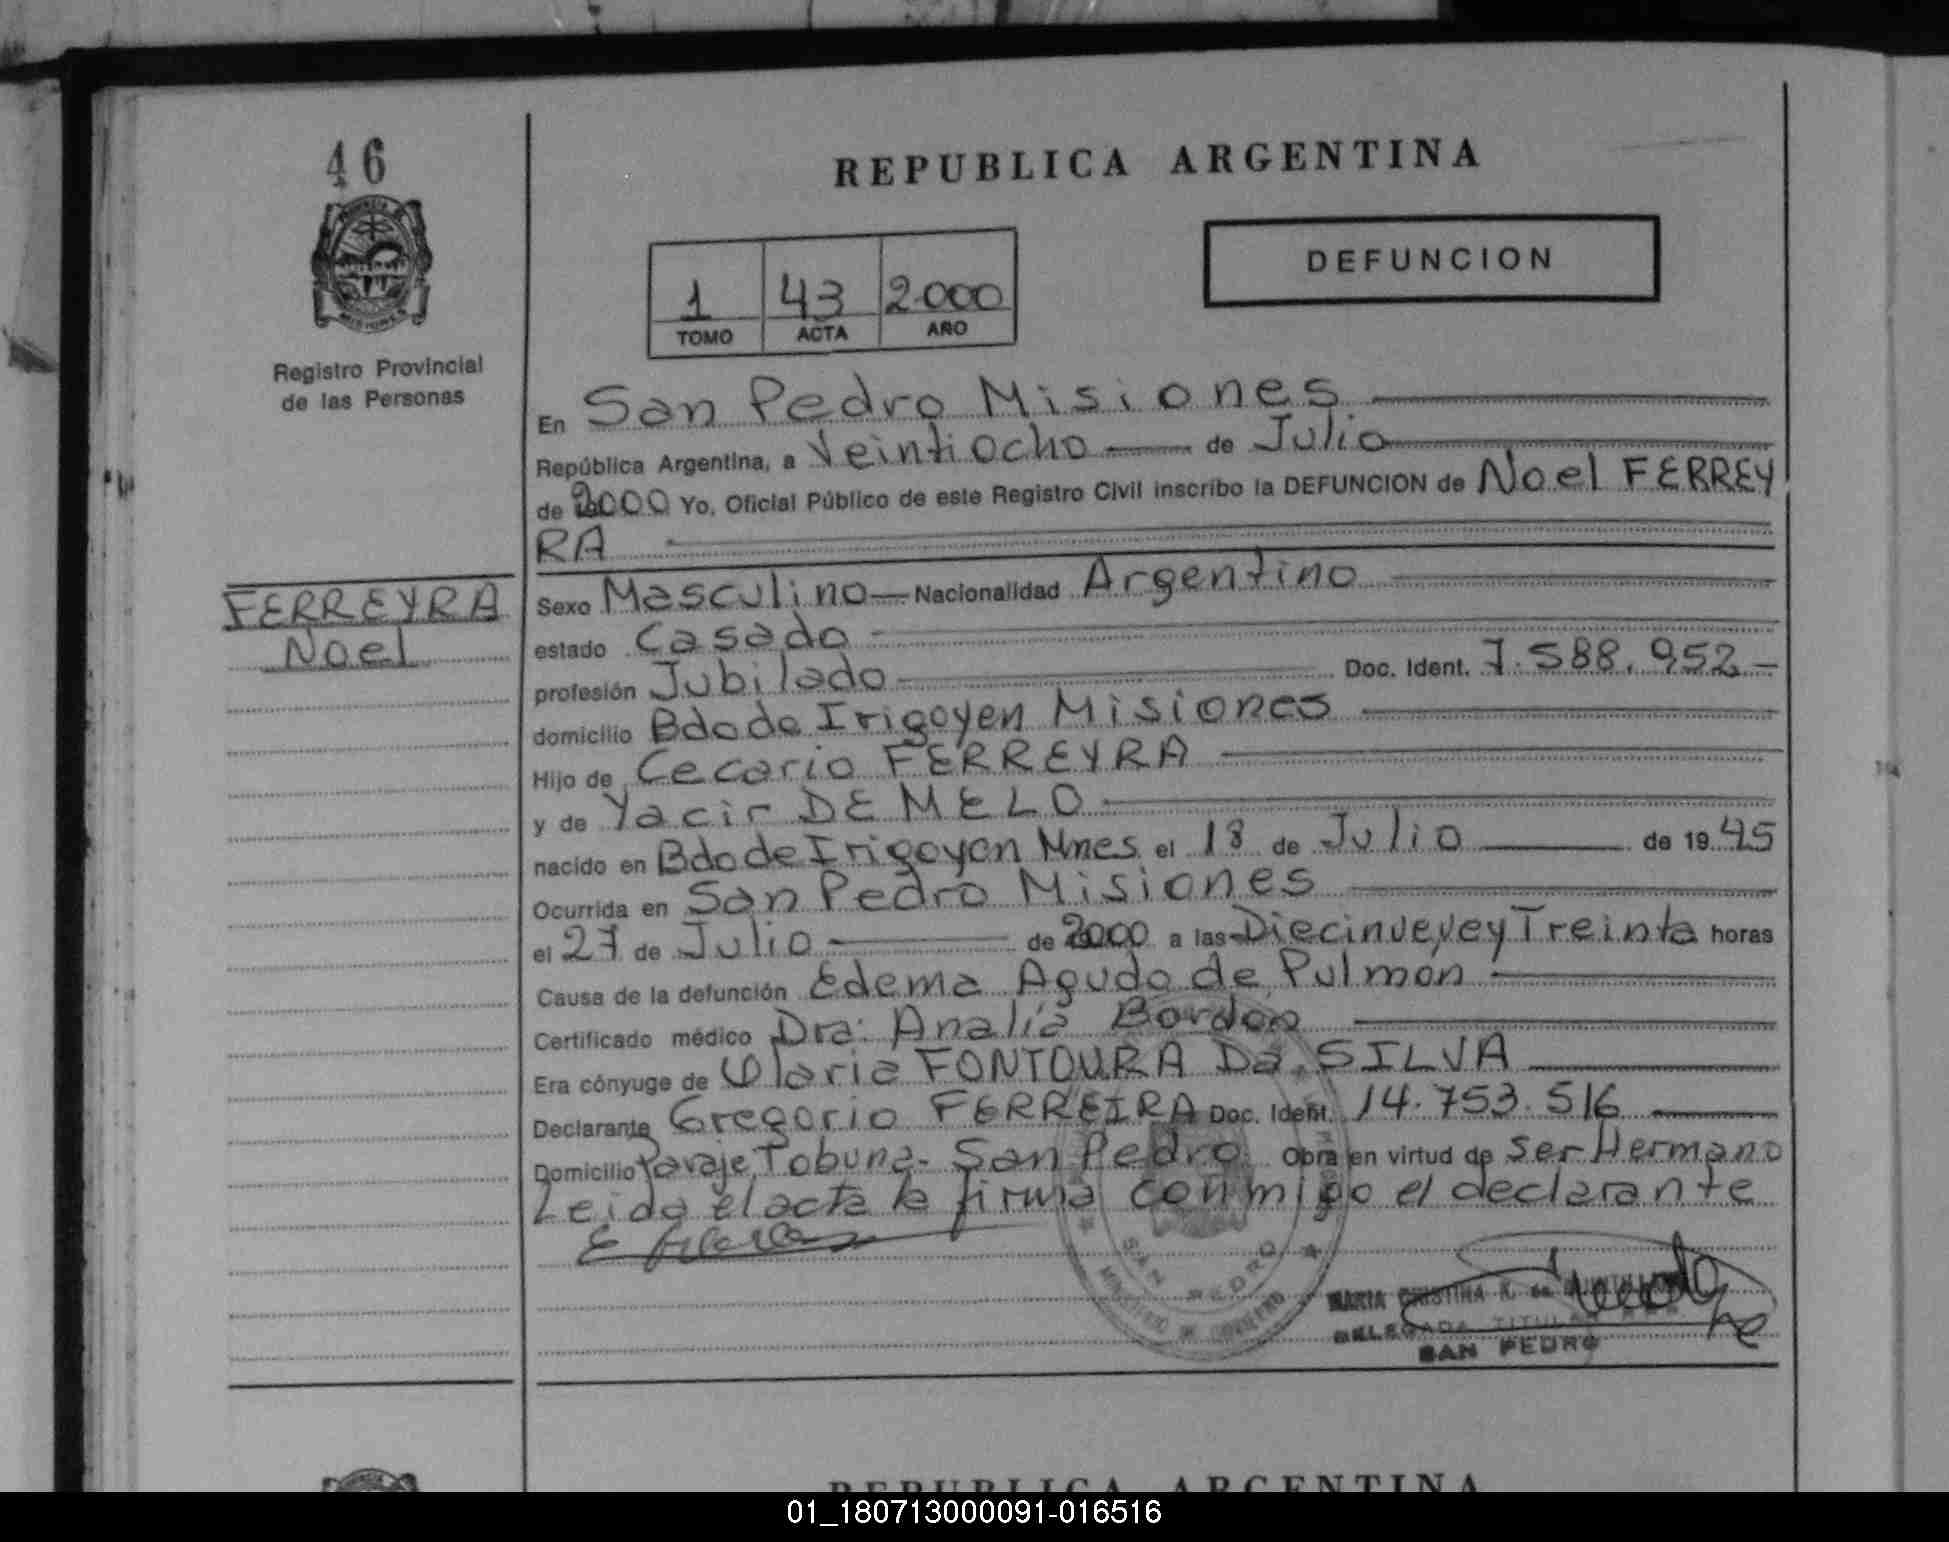 46
REPUBLICA ARGENTINA
DEFUNCION
1 43 2000
TOMO ACTA AÑO
Registro Provincial
de las Personas
En San Pedro Misiones
República Argentina, a Veintiocho de Julio
de 2000 Yo, Oficial Público de este Registro Civil inscribo la DEFUNCION de Noel FERREY
RA
FERREYRA
Noel
Sexo Masculino Nacionalidad Argentino
estado Casado
profesión Jubilado Doc. Ident. 7.588.952
domicilio Bdo de Irigoyen Misiones
Hijo de Cecario FERREYRA
y de Yacir DE MELO
nacido en Bdo de Irigoyen Mnes el 18 de Julio de 1945
Ocurrida en San Pedro Misiones
el 27 de Julio de 2000 a las Diecinueve y Treinta horas
Causa de la defunción Edema Agudo de Pulmón
Certificado médico Dra: Analía Bordon
Era cónyuge de Claria FONTOURA Da SILVA
Declarante Gregorio FERREIRA Doc. Ident. 14.753.516
Domicilio Paraje Tobuna - San Pedro Obra en virtud de Ser Hermano
Leida el acta la firma conmigo el declarante
SAN PEDRO
MINISTERIO DE GOBIERNO
MARIA CRISTINA R. de
DELEGADA TITULAR
SAN PEDRO
REPUBLICA ARGENTINA
01_180713000091-016516